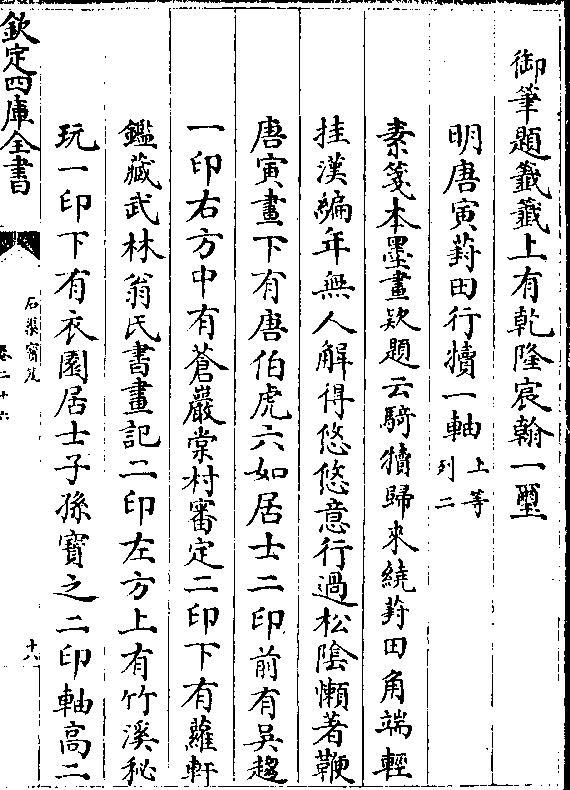 御筆題籤籤上有乾隆宸翰一璽
明唐寅葑田行犢一軸上等列二
素箋本墨畫欵題云騎犢歸來繞葑田角端輕
挂漢編年無人解得悠悠意行過松陰懶著鞭
唐寅畫下有唐伯虎六如居士二印前有吳趨
一印右方中有蒼巖棠村審定二印下有蘿軒
鑑藏武林翁氏書畫記二印左方上有竹溪秘
玩一印下有衣園居士子孫寶之二印軸高二
欽定四庫全書
石渠寶笈
卷二十六
十八